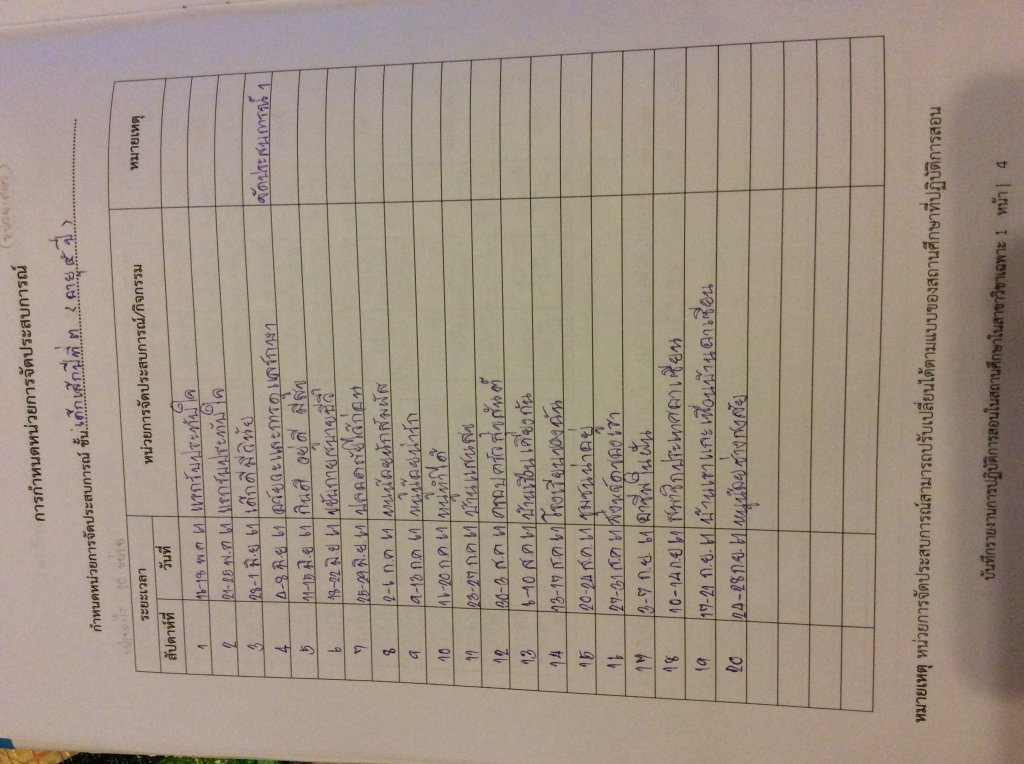 การกำหนดหน่วยการจัดประสบการณ์
กำหนดหน่วยการจัดประสบการณ์ ชั้น เด็กเล็กปีที่ ๓ ( อายุ ๕ ปี )
ระยะเวลา หน่วยการจัดประสบการณ์/กิจกรรม หมายเหตุ
สัปดาห์ที่ วันที่
1 16-18 พ.ค. แรกรับประทับใจ
2 21-25 พ.ค. แรกรับประทับใจ
3 28-1 มิ.ย. เด็กดีมีวินัย จัดประสบการณ์ 1
4 4-8 มิ.ย. อวัยวะและการดูแลรักษา
5 11-15 มิ.ย. กินดี อยู่ดี มีสุข
6 18-22 มิ.ย. ขยับกายสบายชีวี
7 25-29 มิ.ย.
8 2-6 ก.ค. หนูน้อยนักสัมผัส
9 9-13 ก.ค. หนูน้อยน่ารัก
10 16-20 ก.ค. หนูทำได้
11 23-27 ก.ค. บ้านแสนสุข
12 30-3 ส.ค. ครอบครัวสุขสันต์
13 6-10 ส.ค. บ้านเรือนเคียงกัน
14 13-17 ส.ค. โรงเรียนของฉัน
15 20-24 ส.ค. ชุมชนน่าอยู่
16 27-31 ส.ค.
17 3-7 ก.ย. อาชีพในฝัน
18 10-14 ก.ย. สมาชิกประเทศอาเซียน
19 17-21 ก.ย. บ้านเราและเพื่อนบ้านอาเซียน
20 24-28 ก.ย. หนูน้อยช่างสงสัย
หมายเหตุ หน่วยการจัดประสบการณ์สามารถปรับเปลี่ยนได้ตามแบบของสถานศึกษาที่ปฏิบัติการสอน
บันทึกรายงานการปฏิบัติการสอนในสถานศึกษาในสาขาวิชาเฉพาะ 1 หน้า | 4